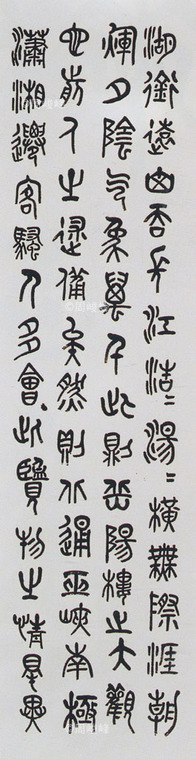 湖銜遠山吞長江浩〻湯〻橫無際涯朝
煇夕陰气象萬千此則岳陽樓之大觀
也前人之述備矣然則北通巫峽南極
瀟湘遷客騷人多會、此覽物之情得異